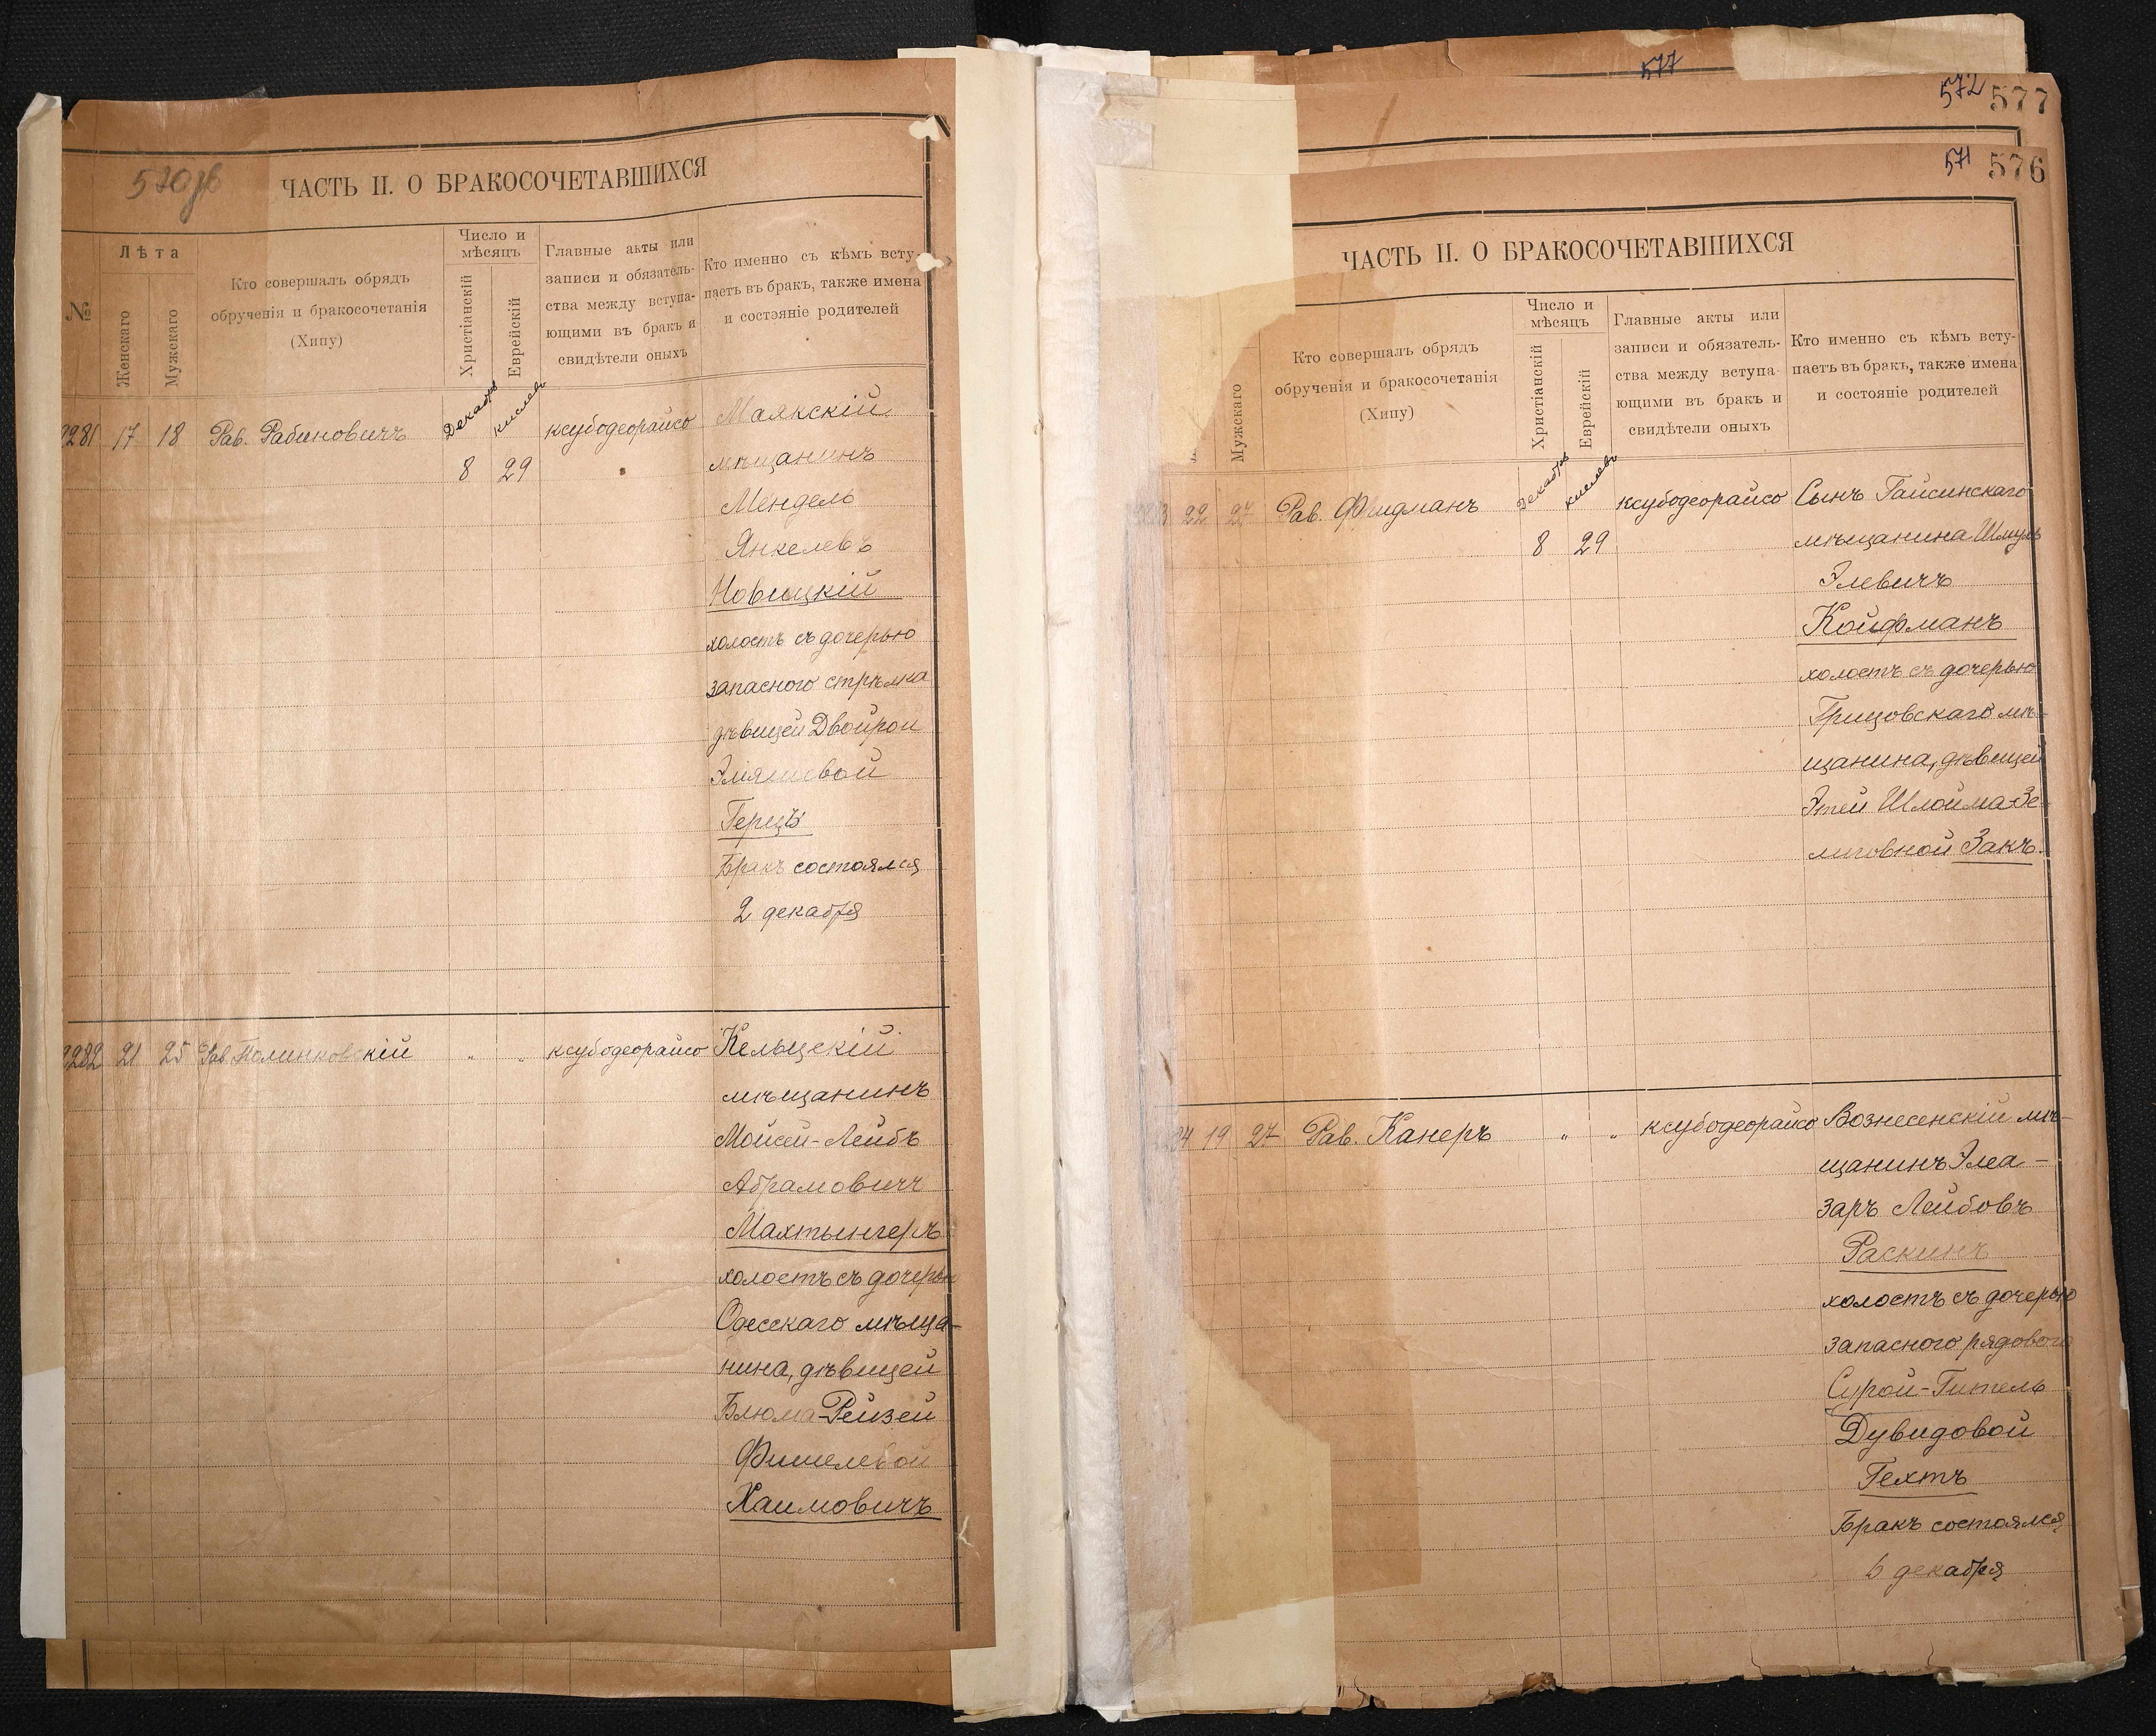 570 об
ЧАСТЬ II. О БРАКОСОЧЕТАВШИХСЯ
№
Лѣта
Женскаго
Мужскаго
Кто совершалъ обрядъ
обрученія и бракосочетанія
(Хипу)
Число и
мѣсяцъ
Христіанскій
Еврейскій
Главные акты или
записи и обязатель-
ства между вступа-
ющими въ бракъ и
свидѣтели оныхъ
Кто именно съ кѣмъ всту-
паетъ въ бракъ, также имена
и состояніе родителей
281 17 18 Рав. Рабиновичъ
Декабрь
кислевъ
8 29
ксубодеорайсо
Маякскій
мѣщанинъ
Мендель
Янкелевъ
Новицкій
холостъ съ дочерью
запасного стрѣлка
дѣвицей Двойрой
Эліяшевой
Герцъ
Бракъ состоялся
2 декабря
282 21 25 Рав. Полинковскій " " ксубодеорайсо
Кельцскій
мѣщанинъ
Мойсей-Лейбъ
Абрамовичъ
Махтынгеръ
холостъ съ дочерью
Одесскаго мѣща-
нина, дѣвицей
Блюма-Рейзей
Фишелевой
Хаимовичъ
577
572 577
571 576
ЧАСТЬ II. О БРАКОСОЧЕТАВШИХСЯ
Мужскаго
Кто совершалъ обрядъ
обрученія и бракосочетанія
(Хипу)
Число и
мѣсяцъ
Христіанскій
Еврейскій
Главные акты или
записи и обязатель-
ства между вступа-
ющими въ бракъ и
свидѣтели оныхъ
Кто именно съ кѣмъ всту-
паетъ въ бракъ, также имена
и состояніе родителей
22 27 Рав. Фридманъ
Декабрь
кислевъ
8 29
ксубодеорайсо
Сынъ Гайсинскаго
мѣщанина Шмуль
Элевичъ
Койфманъ
холостъ съ дочерью
Грицовскаго мѣ-
щанина, дѣвицей
Этей Шлойма-Зе-
лиговной Закъ.
84 19 27 Рав. Канеръ " " ксубодеорайсо
Вознесенскій мѣ-
щанинъ Элеа-
заръ Лейбовъ
Раскинъ
холостъ съ дочерью
запасного рядового
Сурой-Гитель
Дувидовой
Гехтъ
Бракъ состоялся
6 декабря